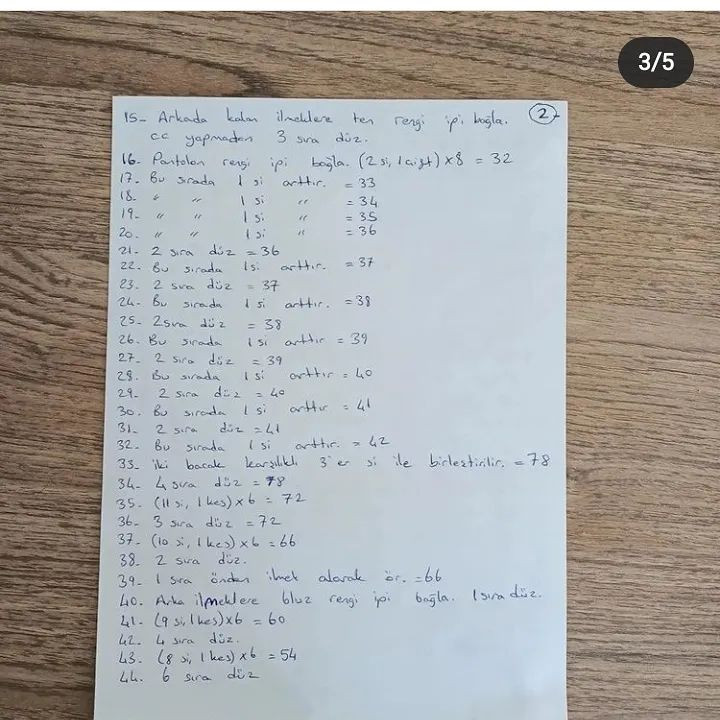 3/5
2
15- Arkada kalan ilmeklere ten rengi ipi bağla.
cc yapmadan 3 sıra düz.
16- Pantolon rengi ipi bağla. (2 si, 1 artt) x 8 = 32
17- Bu sırada 1 si arttır. = 33
18. " " 1 si " = 34
19- " " 1 si " = 35
20. " " 1 si " = 36
21- 2 sıra düz = 36
22. Bu sırada 1 si arttır. = 37
23. 2 sıra düz = 37
24- Bu sırada 1 si arttır. = 38
25- 2 sıra düz = 38
26- Bu sırada 1 si arttır = 39
27- 2 sıra düz = 39
28. Bu sırada 1 si arttır = 40
29- 2 sıra düz = 40
30. Bu sırada 1 si arttır = 41
31. 2 sıra düz = 41
32- Bu sırada 1 si arttır. = 42
33- iki bacak karşılıklı 3'er si ile birleştirilir. = 78
34- 4 sıra düz = 78
35. (11 si, 1 kes) x 6 = 72
36- 3 sıra düz = 72
37- (10 si, 1 kes) x 6 = 66
38- 2 sıra düz.
39- 1 sıra önden ilmek alarak ör. = 66
40. Arka ilmeklere bluz rengi ipi bağla. 1 sıra düz.
41- (9 si, 1 kes) x 6 = 60
42. 4 sıra düz.
43. (8 si, 1 kes) x 6 = 54
44. 6 sıra düz